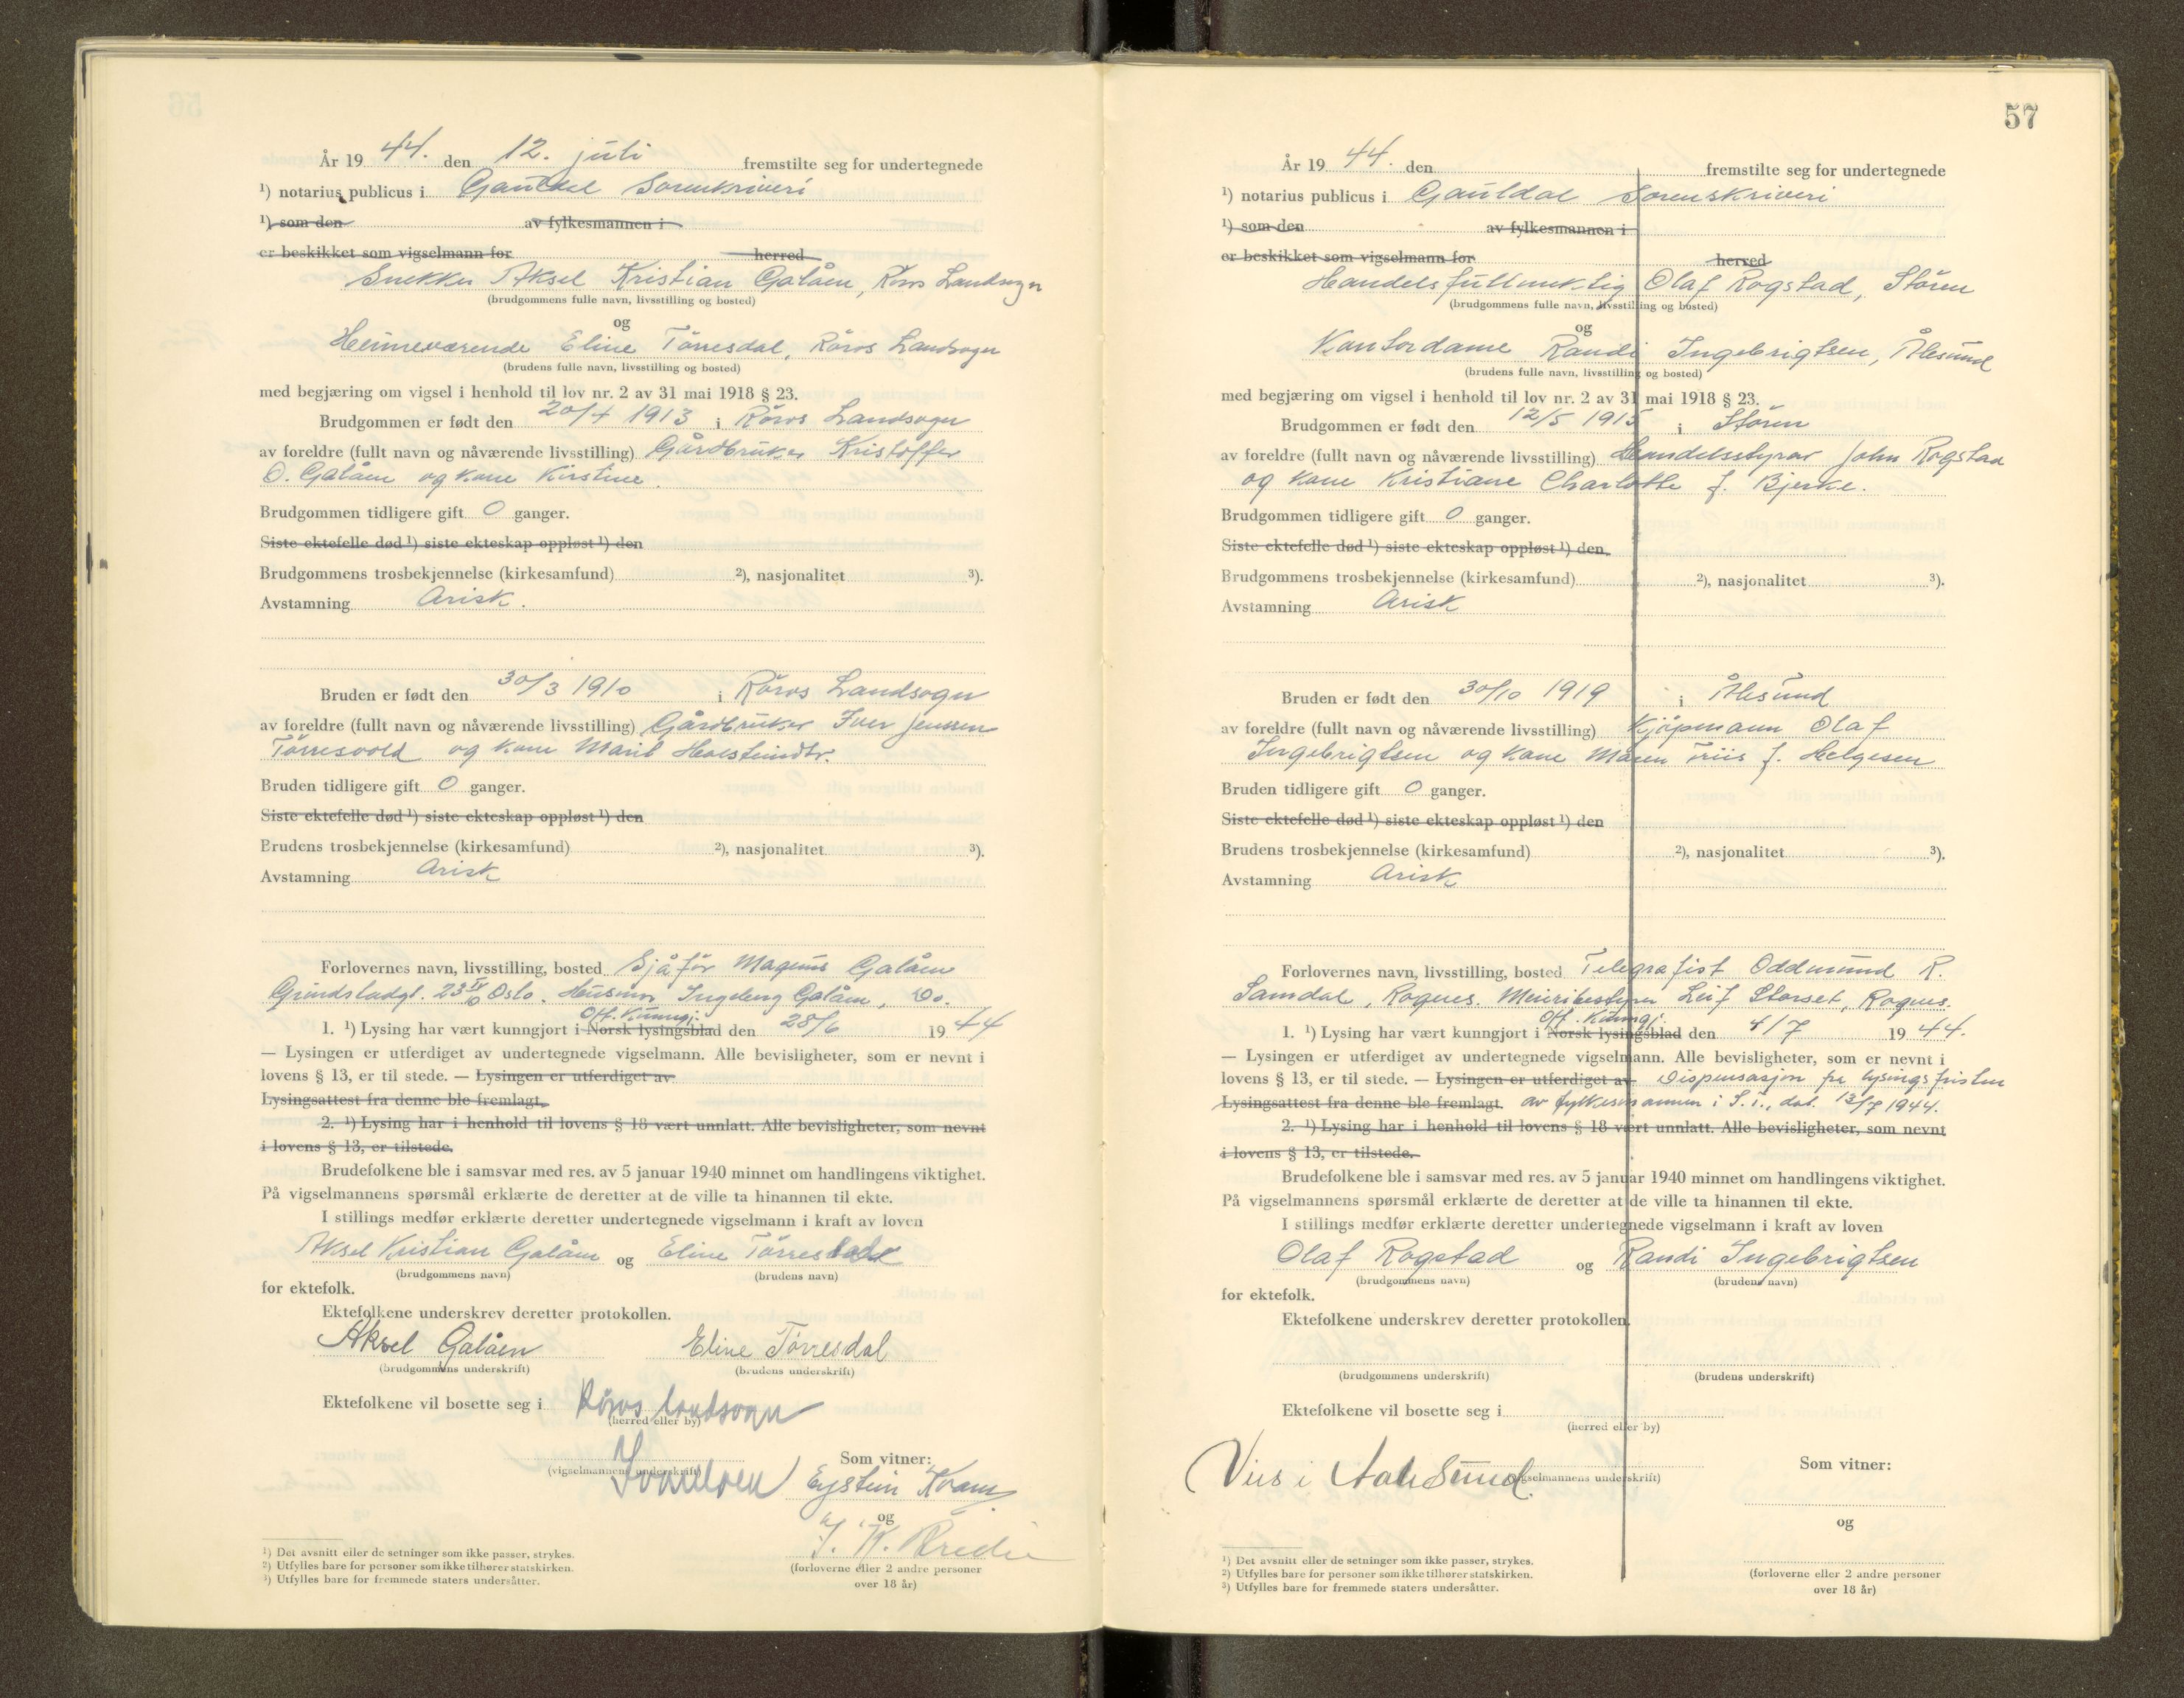 År 19 44. den 12. juli fremstilte seg for undertegnede
¹) notarius publicus i Gauldal Sorenskriveri
¹) som den av fylkesmannen i
er beskikket som vigselmann for herred
Snekker Aksel Kristian Galåen, Röros Landsogn
(brudgommens fulle navn, livsstilling og bosted)
og
Heimeværende Eline Törresdal, Röros Landsogn
(brudens fulle navn, livsstilling og bosted)
med begjæring om vigsel i henhold til lov nr. 2 av 31 mai 1918 § 23.
Brudgommen er født den 20/4 1913 i Röros Landsogn
av foreldre (fullt navn og nåværende livsstilling) Gårdbruker Kristoffer
O. Galåen og kone Kirstine.
Brudgommen tidligere gift 0 ganger.
Siste ektefelle død ¹) siste ekteskap oppløst ¹) den
Brudgommens trosbekjennelse (kirkesamfund) ²), nasjonalitet ³).
Avstamning Arisk.
Bruden er født den 30/3 1910 i Röros Landsogn
av foreldre (fullt navn og nåværende livsstilling) Gårdbruker Iver Jensen
Törresvold og kone Marit Holsteindtr.
Bruden tidligere gift 0 ganger.
Siste ektefelle død ¹) siste ekteskap oppløst ¹) den
Brudens trosbekjennelse (kirkesamfund) ²), nasjonalitet ³).
Avstamning Arisk
Forlovernes navn, livsstilling, bosted Sjåför Magnus Galåen
Grindstadgt. 23 Oslo. Husmor Ingeborg Galåen, Do.
Off. Kunngj.
1. ¹) Lysing har vært kunngjort i Norsk lysingsblad den 28/6 19 44
— Lysingen er utferdiget av undertegnede vigselmann. Alle bevisligheter, som er nevnt i
lovens § 13, er til stede. — Lysingen er utferdiget av
Lysingsattest fra denne ble fremlagt.
2. ¹) Lysing har i henhold til lovens § 18 vært unnlatt. Alle bevisligheter, som nevnt
i lovens § 13, er tilstede.
Brudefolkene ble i samsvar med res. av 5 januar 1940 minnet om handlingens viktighet.
På vigselmannens spørsmål erklærte de deretter at de ville ta hinannen til ekte.
I stillings medfør erklærte deretter undertegnede vigselmann i kraft av loven
Aksel Kristian Galåen og Eline Törresdal
(brudgommens navn) (brudens navn)
for ektefolk.
Ektefolkene underskrev deretter protokollen.
Aksel Galåen Eline Törresdal
(brudgommens underskrift) (brudens underskrift)
Ektefolkene vil bosette seg i Röros landsogn
(herred eller by)
Som vitner:
(vigselmannens underskrift) Eystein Kvam
og
(forloverne eller 2 andre personer
over 18 år)
¹) Det avsnitt eller de setninger som ikke passer, strykes.
²) Utfylles bare for personer som ikke tilhører statskirken.
³) Utfylles bare for fremmede staters undersåtter.
57
År 19 44. den fremstilte seg for undertegnede
¹) notarius publicus i Gauldal Sorenskriveri
¹) som den av fylkesmannen i
er beskikket som vigselmann for herred
Handelsfullmektig Olaf Rogstad, Stören
(brudgommens fulle navn, livsstilling og bosted)
og
Kontordame Randi Ingebrigtsen, Ålesund
(brudens fulle navn, livsstilling og bosted)
med begjæring om vigsel i henhold til lov nr. 2 av 31 mai 1918 § 23.
Brudgommen er født den 12/5 1915 i Stören
av foreldre (fullt navn og nåværende livsstilling) Handelsstyrer John Rogstad
og kone Kristiane Charlotte f. Bjerke.
Brudgommen tidligere gift 0 ganger.
Siste ektefelle død ¹) siste ekteskap oppløst ¹) den
Brudgommens trosbekjennelse (kirkesamfund) ²), nasjonalitet ³).
Avstamning Arisk
Bruden er født den 30/10 1919 i Ålesund
av foreldre (fullt navn og nåværende livsstilling) Kjöpmann Olaf
Ingebrigtsen og kone Maren Friis f. Helgesen
Bruden tidligere gift 0 ganger.
Siste ektefelle død ¹) siste ekteskap oppløst ¹) den
Brudens trosbekjennelse (kirkesamfund) ²), nasjonalitet ³).
Avstamning Arisk
Forlovernes navn, livsstilling, bosted Telegrafist Oddmund R.
Samdal, Rognes. Meieribestyrer Leif Storset, Rognes.
Off. Kunngj.
1. ¹) Lysing har vært kunngjort i Norsk lysingsblad den 4/7 19 44.
— Lysingen er utferdiget av undertegnede vigselmann. Alle bevisligheter, som er nevnt i
lovens § 13, er til stede. — Lysingen er utferdiget av Dispensasjon fra lysingsfristen
Lysingsattest fra denne ble fremlagt. av fylkesmannen i S. T., dat. 13/7 1944.
2. ¹) Lysing har i henhold til lovens § 18 vært unnlatt. Alle bevisligheter, som nevnt
i lovens § 13, er tilstede.
Brudefolkene ble i samsvar med res. av 5 januar 1940 minnet om handlingens viktighet.
På vigselmannens spørsmål erklærte de deretter at de ville ta hinannen til ekte.
I stillings medfør erklærte deretter undertegnede vigselmann i kraft av loven
Olaf Rogstad og Randi Ingebrigtsen
(brudgommens navn) (brudens navn)
for ektefolk.
Ektefolkene underskrev deretter protokollen.
(brudgommens underskrift) (brudens underskrift)
Ektefolkene vil bosette seg i
(herred eller by)
Vies i Aalesund.
(vigselmannens underskrift) Som vitner:
og
(forloverne eller 2 andre personer
over 18 år)
¹) Det avsnitt eller de setninger som ikke passer, strykes.
²) Utfylles bare for personer som ikke tilhører statskirken.
³) Utfylles bare for fremmede staters undersåtter.